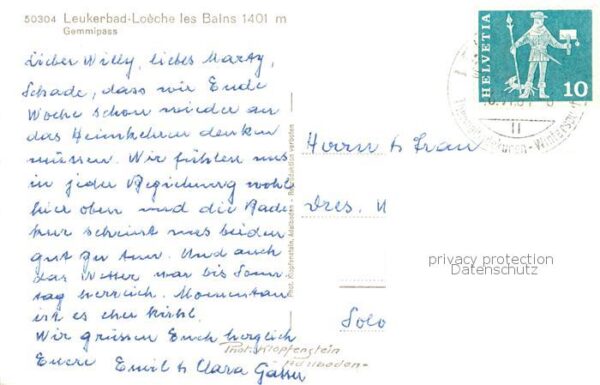 50304 Leukerbad-Loèche les Bains 1401 m
Gemmipass
HELVETIA
10
Lieber Willy, liebes Marty,
Schade, dass wir Ende
Woche schon wieder an
das Heimkehren denken
müssen. Wir fühlen uns
in jeder Beziehung wohl
hier oben und die Bade
kur scheint uns beiden
gut zu tun. Und auch
das Wetter war bis Sonn
tag herrlich. Momentan
ist es eher kühl.
Wir grüssen Euch herzlich
Euere Emil & Clara Gasser
Phot. Klopfenstein, Adelboden - Reproduktion verboten
Herrn & Frau
Dres. M
Solo
privacy protection
Datenschutz
Phot. Klopfenstein
Adelboden